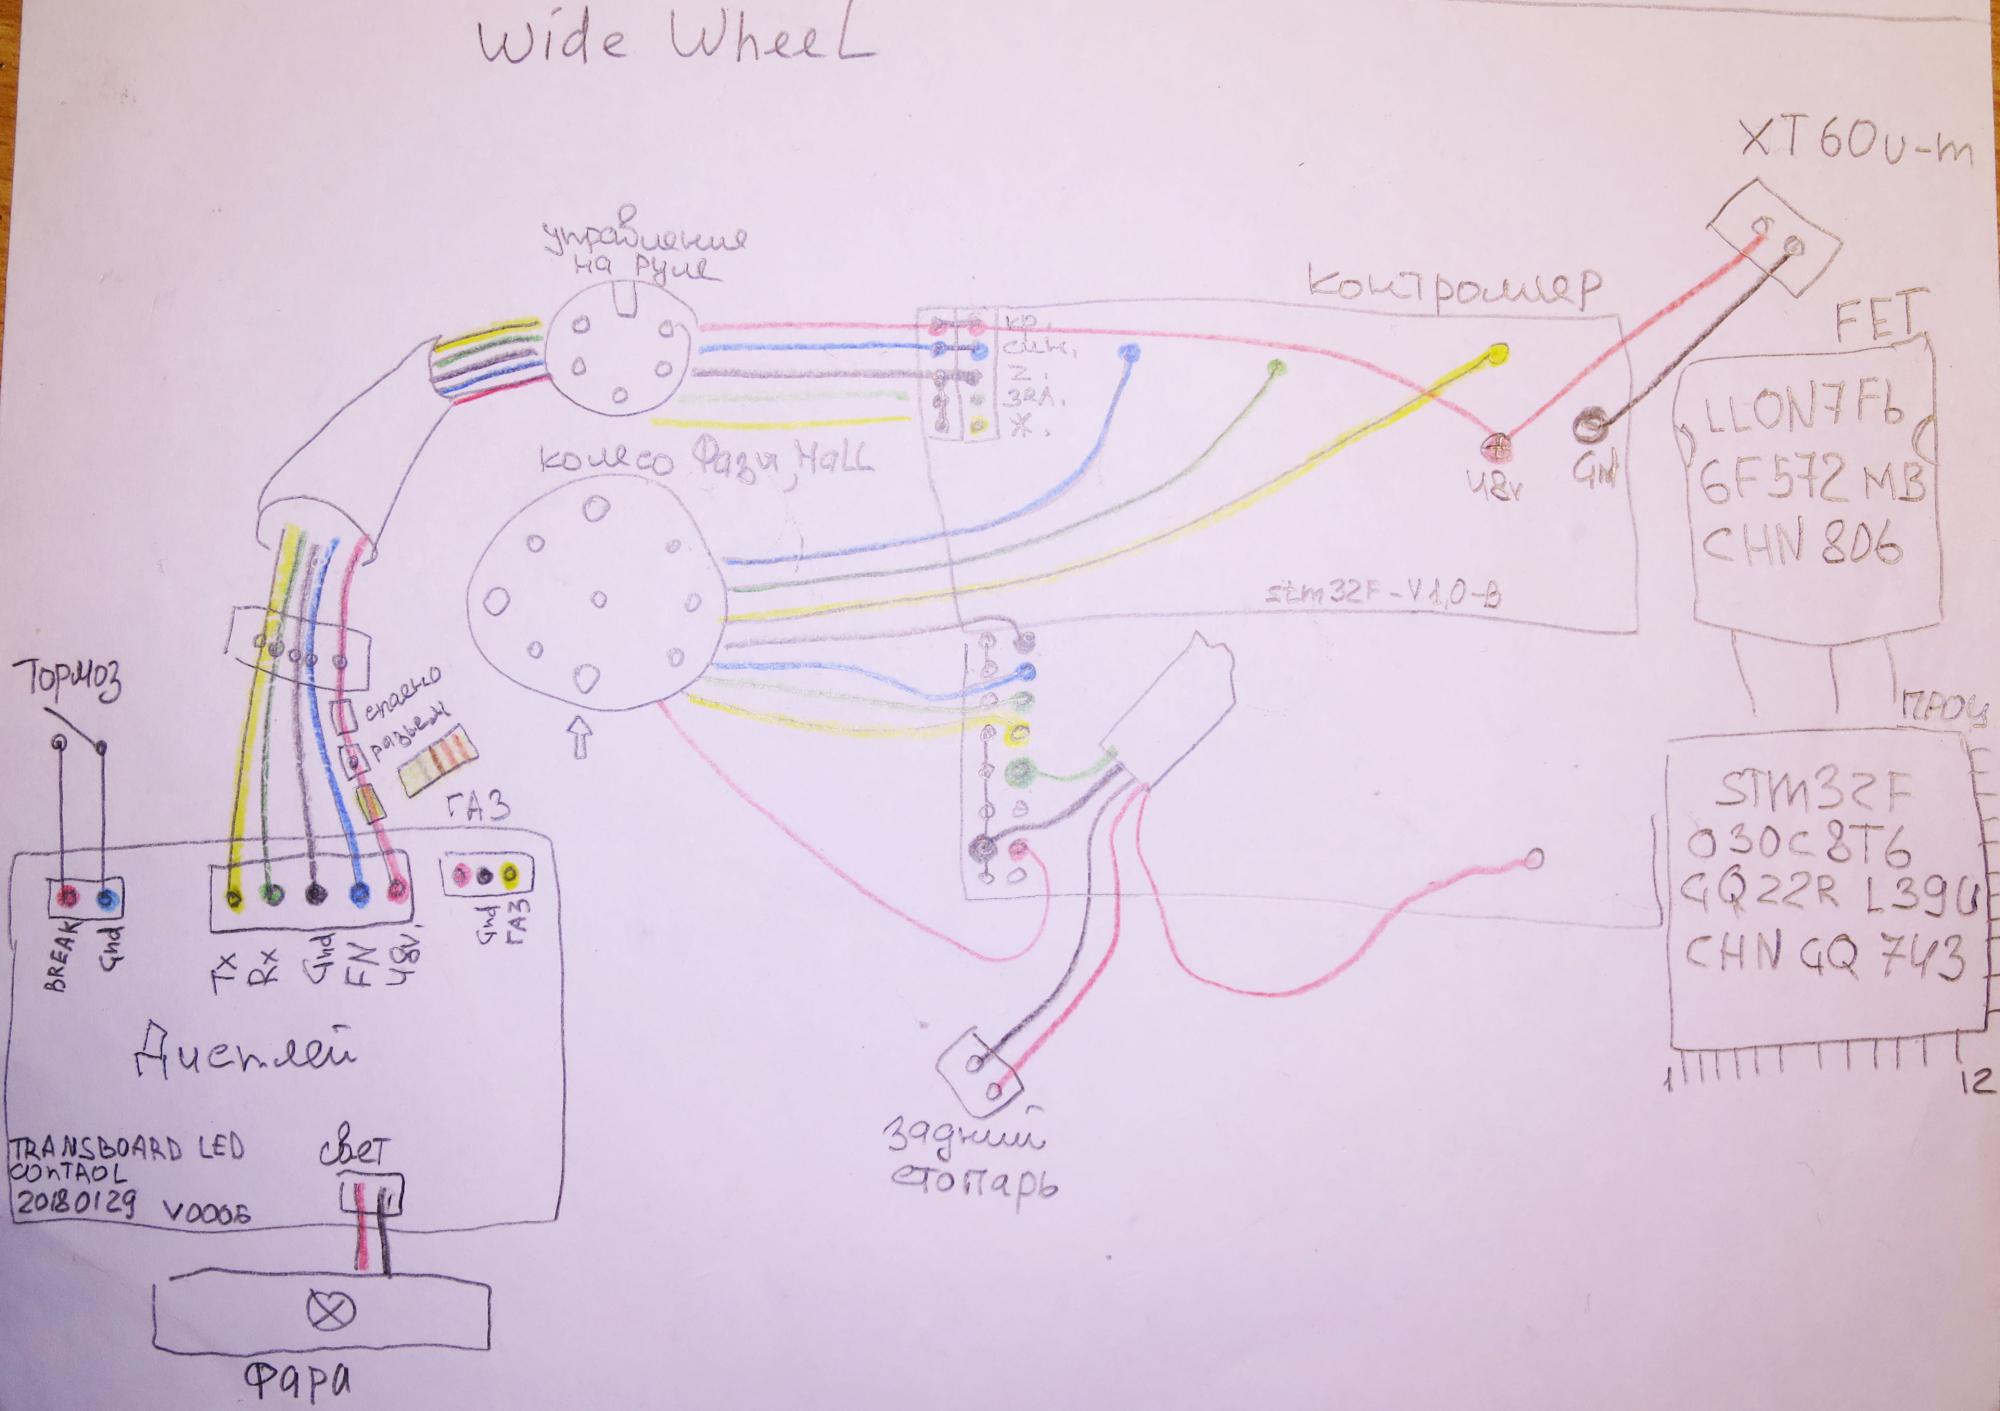 Wide Wheel
XT60u-m
управления
на руле
контроллер
FET
LLON7F6
6F572 MB
CHN 806
кр.
син.
Z.
зел.
Ж.
колесо Фазы, Hall
48v
Gnd
stm32F-V1,0-B
Тормоз
спаяно
разъем
ГАЗ
проц
STM32F
030C8T6
GQ22R L39U
CHN GQ 743
1
12
BREAK
Gnd
Tx
Rx
Gnd
FN
48v.
Gnd
ГАЗ
Дисплей
задний
стопарь
TRANSBOARD LED
CONTAOL
20180129 V0006
свет
Фара